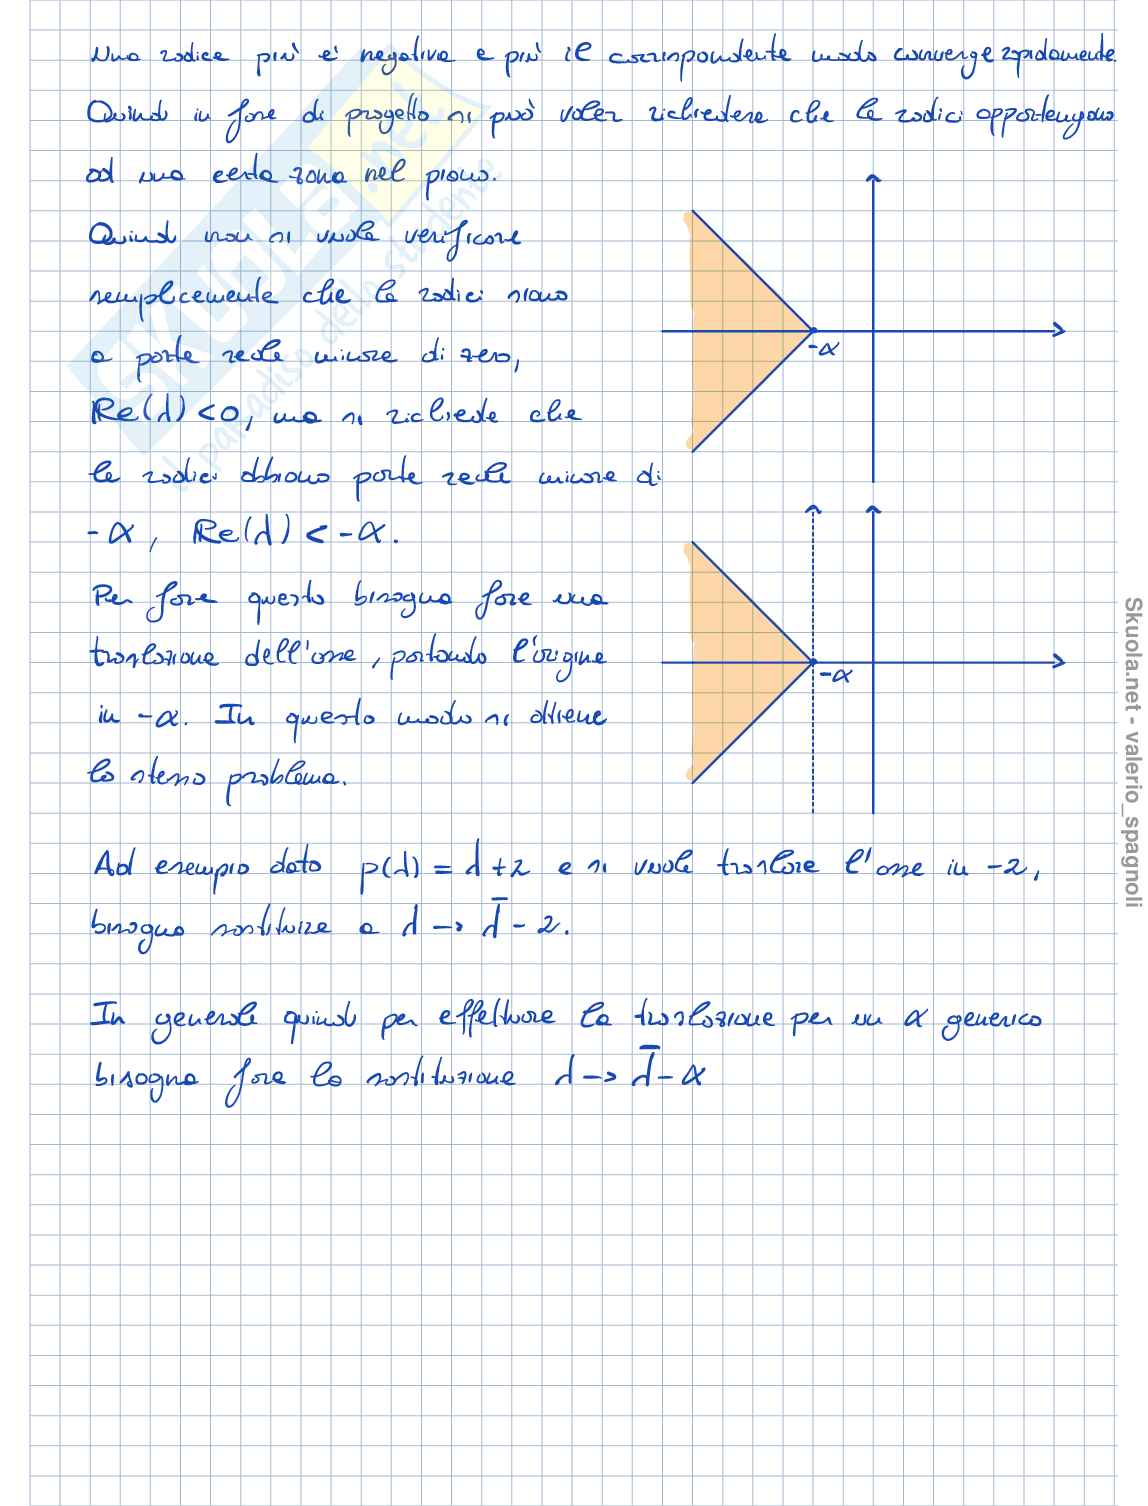 Una radice più e' negativa e più il corrispondente modo converge rapidamente.
Quindi in fase di progetto si può voler richiedere che le radici appartengano
ad una certa zona nel piano.
Quindi non si vuole verificare
semplicemente che le radici siano
a parte reale minore di zero,
Re(λ) < 0, ma si richiede che
le radici abbiano parte reale minore di
-α, Re(λ) < -α.
Per fare questo bisogna fare una
traslazione dell'asse, portando l'origine
in -α. In questo modo si ottiene
lo stesso problema.
-α
-α
Ad esempio dato p(λ) = λ + 2 e si vuole traslare l'asse in -2,
bisogna sostituire a λ → λ̄ - 2.
In generale quindi per effettuare la traslazione per un α generico
bisogna fare la sostituzione λ → λ̄ - α
SKUOLA.net
il paradiso dello studente
Skuola.net - valerio_spagnoli